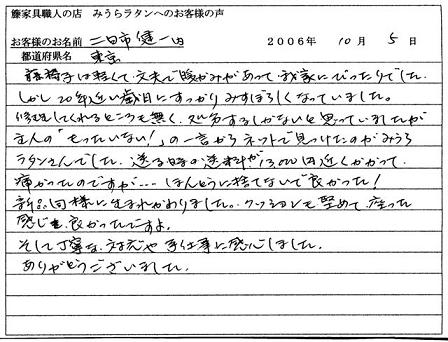 籐家具職人の店 みうらラタンへのお客様の声
お客様のお名前 二日市 健一内 2006年 10月 5日
都道府県名 東京
籐椅子は軽くて丈夫で暖かみがあって、我家にぴったりでした。
しかし20年近い歳月にすっかりみすぼらしくなっていました。
修理してくれるところも無く、処分するしかないと思っていましたが
主人の「もったいない!」の一言からネットで見つけたのがみうら
ラタンさんでした。送る時の送料が13,000円近くかかって
痛かったのですが…ほんとうに捨てないで良かった!
新品同様に生まれかわりました。クッションも堅めで座った
感じも良かったですよ。
そして丁寧な対応や手仕事に感心しました。
ありがとうございました。